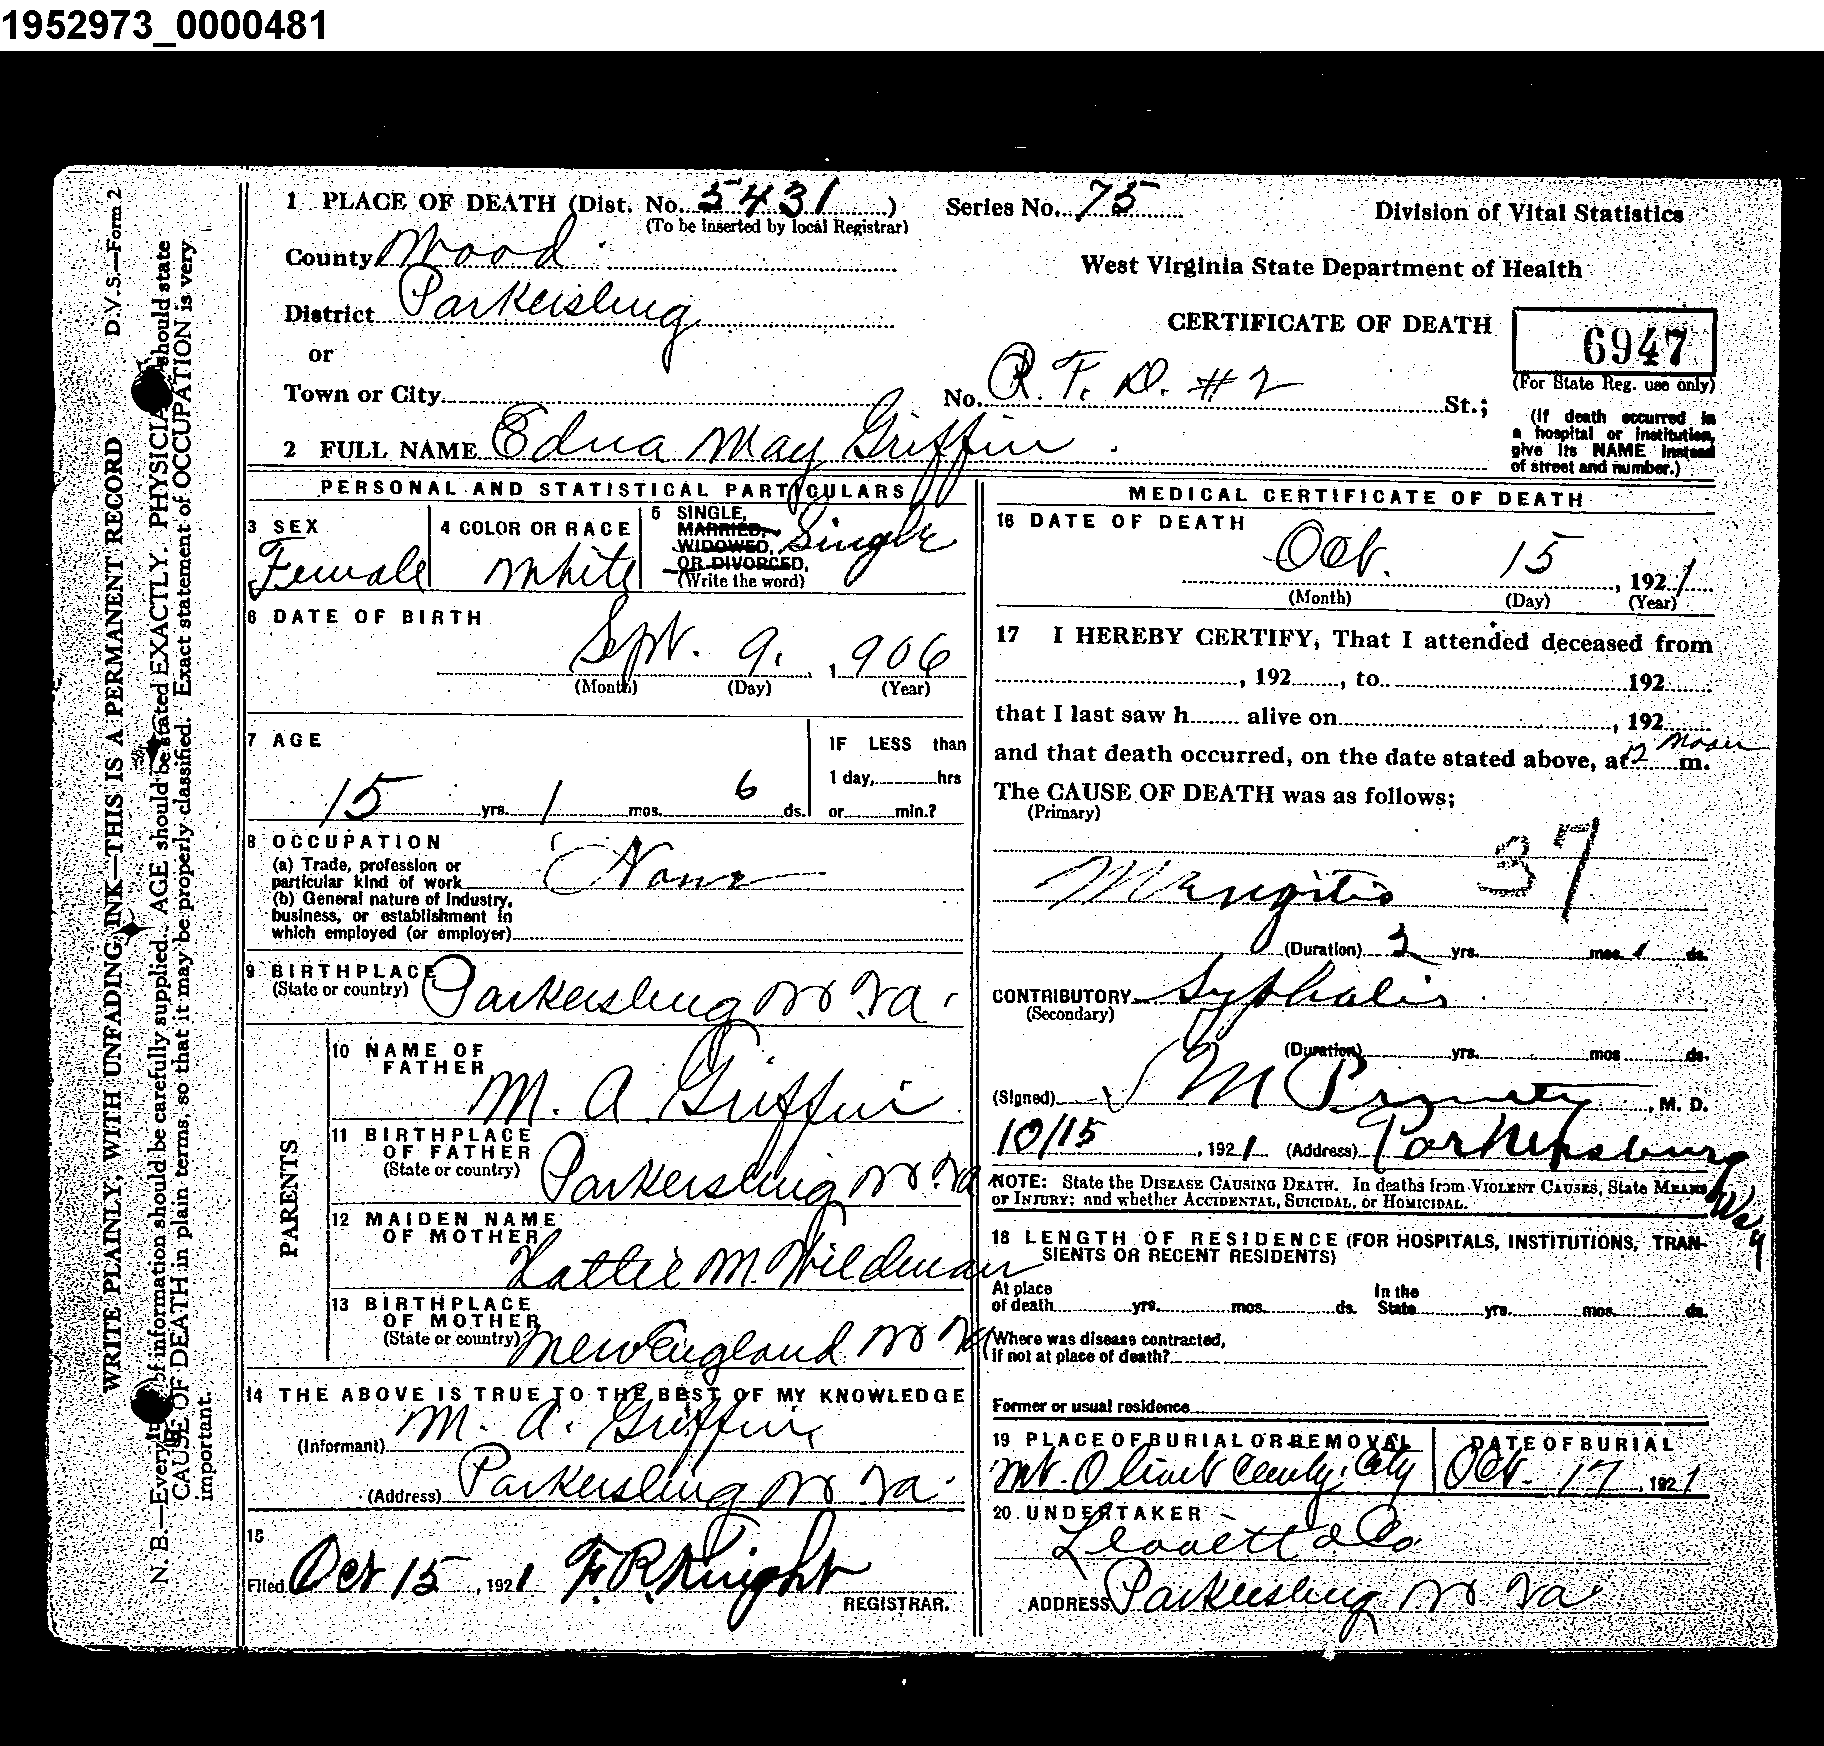 1952973_0000481
D.V.S.—Form 2
WRITE PLAINLY, WITH UNFADING INK—THIS IS A PERMANENT RECORD
N. B.—Every of information should be carefully supplied. AGE should be stated EXACTLY. PHYSICIA should state
CAUSE OF DEATH in plain terms, so that it may be properly classified. Exact statement of OCCUPATION is very
important.
1 PLACE OF DEATH (Dist. No. 5431)
(To be inserted by local Registrar)
Series No. 75
Division of Vital Statistics
County Wood
West Virginia State Department of Health
District Parkersburg
CERTIFICATE OF DEATH
6947
(For State Reg. use only)
or
Town or City
No. R. F. D. #2 St.;
(If death occurred in
a hospital or institution,
give its NAME instead
of street and number.)
2 FULL NAME Edna May Griffin
PERSONAL AND STATISTICAL PARTICULARS
3 SEX
Female
4 COLOR OR RACE
White
5 SINGLE,
MARRIED,
WIDOWED,
OR DIVORCED,
(Write the word)
Single
6 DATE OF BIRTH
Sept. 9. , 1906
(Month) (Day) (Year)
7 AGE
15 yrs. 1 mos. 6 ds.
IF LESS than
1 day, hrs
or min.?
8 OCCUPATION
(a) Trade, profession or
particular kind of work None
(b) General nature of industry,
business, or establishment in
which employed (or employer)
9 BIRTHPLACE
(State or country) Parkersburg W Va.
PARENTS
10 NAME OF
FATHER
M. A. Griffin
11 BIRTHPLACE
OF FATHER
(State or country) Parkersburg W. Va
12 MAIDEN NAME
OF MOTHER
M. Wildman
13 BIRTHPLACE
OF MOTHER
(State or country) New England W Va
14 THE ABOVE IS TRUE TO THE BEST OF MY KNOWLEDGE
(Informant) M. A. Griffin
(Address) Parkersburg W Va.
15
Filed Oct 15, 1921 F. R. Knight
REGISTRAR.
MEDICAL CERTIFICATE OF DEATH
16 DATE OF DEATH
Oct. 15 , 1921
(Month) (Day) (Year)
17 I HEREBY CERTIFY, That I attended deceased from
, 192 , to 192
that I last saw h alive on , 192
and that death occurred, on the date stated above, at 12 Noon m.
The CAUSE OF DEATH was as follows;
(Primary)
Mengitis 37
(Duration) 2 yrs. mos. 1 ds.
CONTRIBUTORY Syphalis
(Secondary)
(Duration) yrs. mos ds.
(Signed) M , M. D.
10/15 , 1921 (Address) Parkersburg
W Va
NOTE: State the DISEASE CAUSING DEATH. In deaths from VIOLENT CAUSES, State MEANS
OF INJURY; and whether ACCIDENTAL, SUICIDAL, or HOMICIDAL.
18 LENGTH OF RESIDENCE (FOR HOSPITALS, INSTITUTIONS, TRAN-
SIENTS OR RECENT RESIDENTS)
At place
of death yrs. mos. ds.
In the
State yrs. mos. ds.
Where was disease contracted,
if not at place of death?
Former or usual residence
19 PLACE OF BURIAL OR REMOVAL
Mt. Olivet City
DATE OF BURIAL
Oct. 17, 1921
20 UNDERTAKER
Leavett & Co
ADDRESS Parkersburg W Va